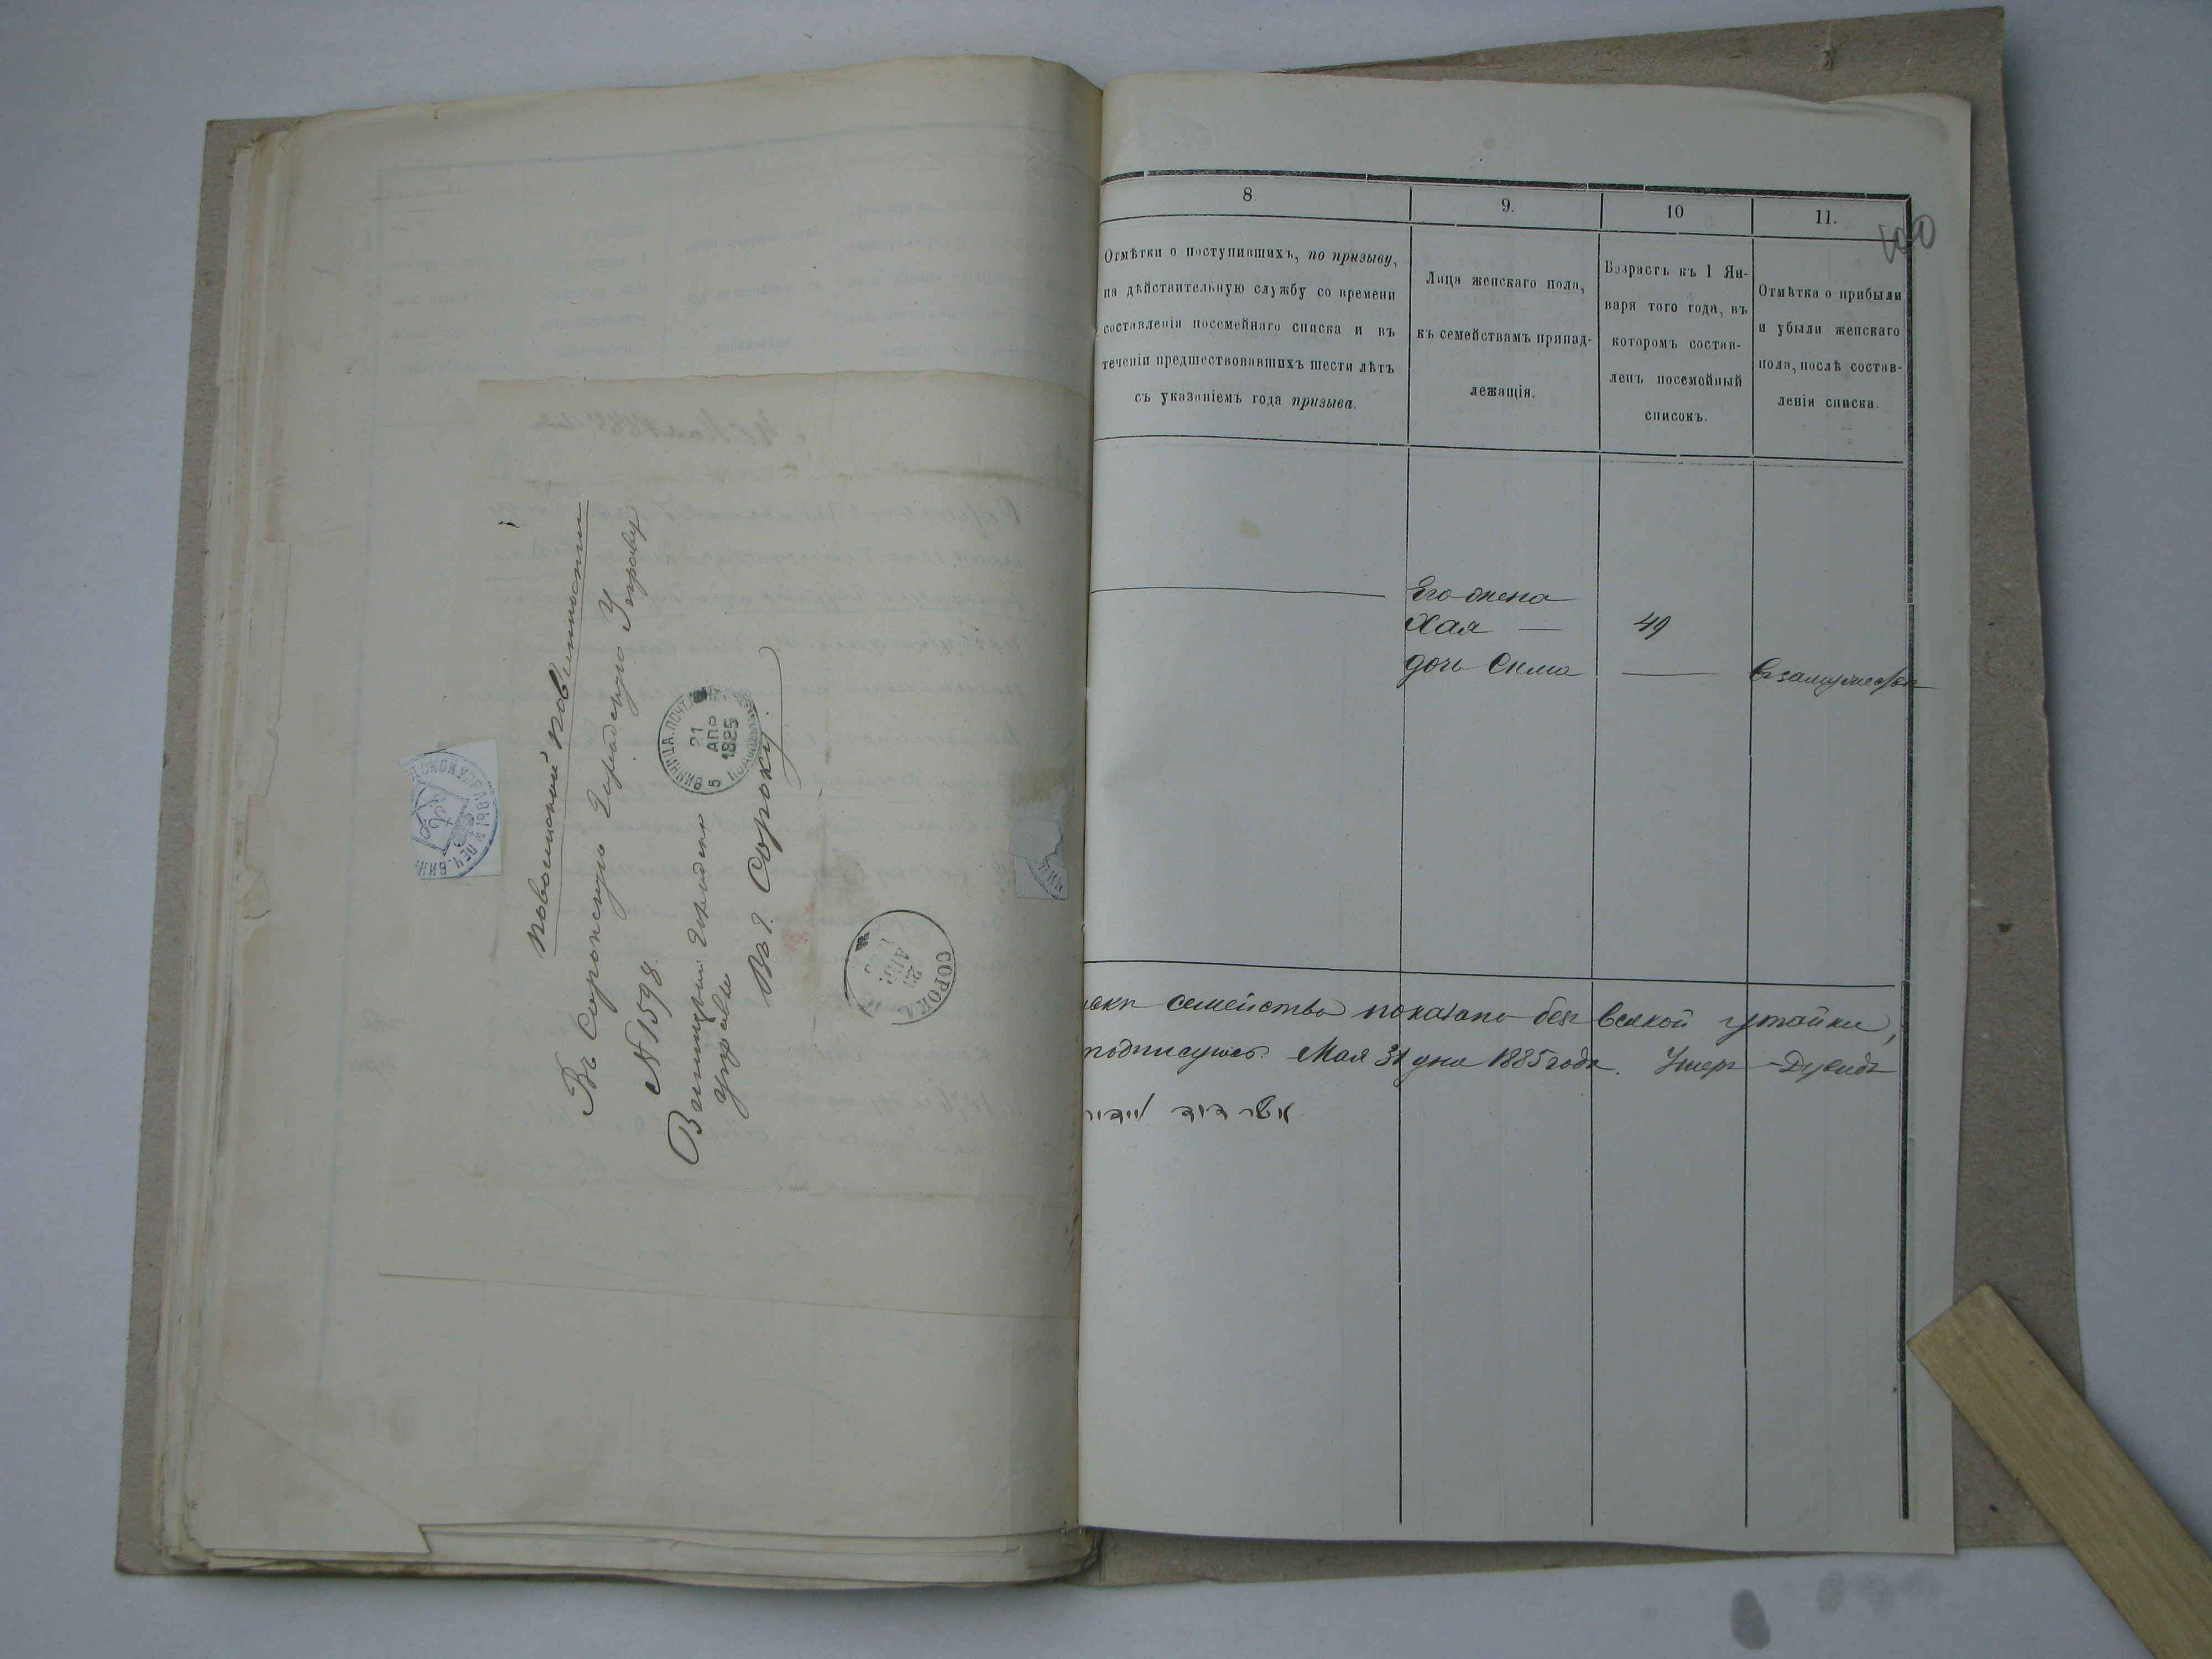 повоинской повинности
Въ Сорокскую Городскую Управу
№ 1598.
Винницкая Городская
управа
Въ г. Сороку
ВИННИЦА. ПОЧТ.
21
АПР
1885
5
СОРОКА
ДСКОЙ УПРАВЫ * ПЕЧ. ВИН
100
8
9.
10
11.
Отмѣтки о поступившихъ, по призыву,
на дѣйствительную службу со времени
составленія посемейнаго списка и въ
теченіи предшествовавшихъ шести лѣтъ
съ указаніемъ года призыва.
Лица женскаго пола,
къ семействамъ принад-
лежащія.
Возрастъ къ 1 Ян-
варя того года, въ
которомъ состав-
ленъ посемейный
списокъ.
Отмѣтка о прибыли
и убыли женскаго
пола, послѣ состав-
ленія списка.
Его жена
Хая — 49
дочь Сима — взамужестве
семейство показано безъ всякой утайки,
подписуюсь Мая 31 дня 1885 года. Ушеръ-Дувидъ
אשר דוד